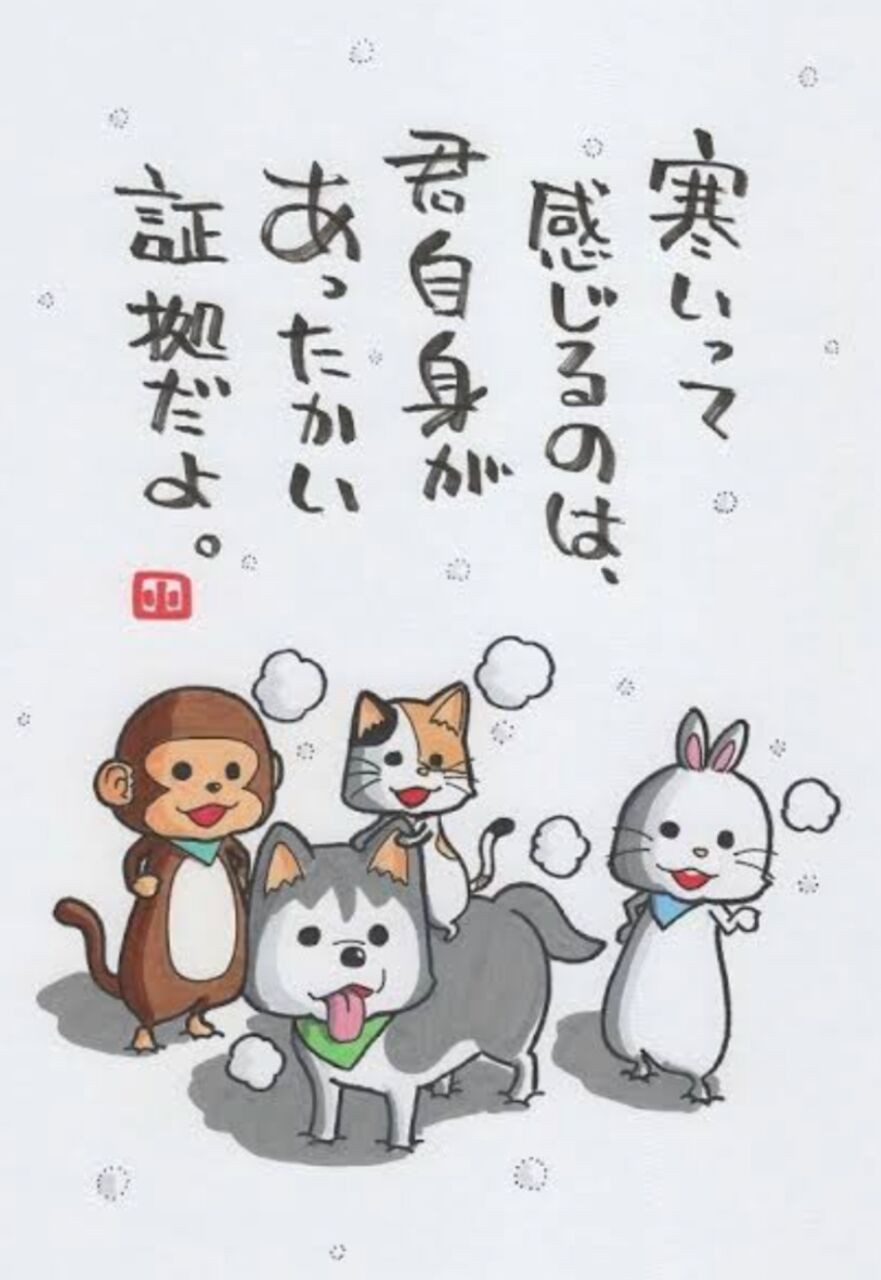 寒いって
感じるのは、
君自身が
あったかい
証拠だよ。